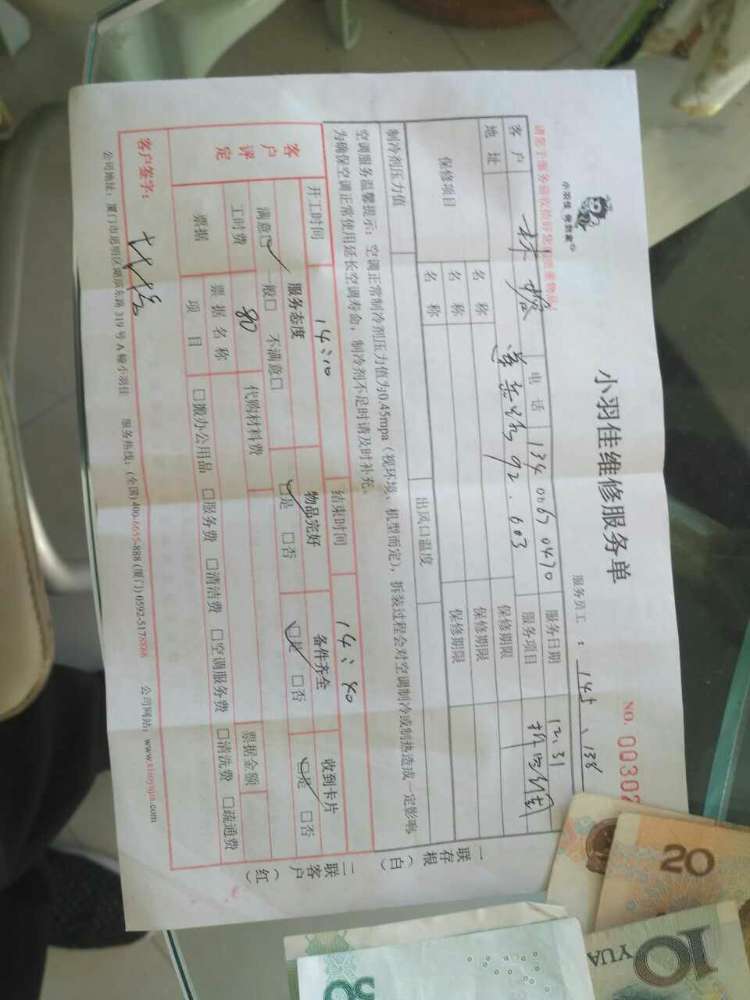 小羽佳维修服务单
NO. 00302
服务员工：145、138
客户 林 电话 134 0067 0470 服务日期 12.31
地址 92.603 服务项目
保修项目 名称 保修期限
名称 保修期限
名称 保修期限
制冷剂压力值 出风口温度
空调服务温馨提示：空调正常制冷剂压力值为0.45mpa（视环境、机型而定），拆装过程会对空调制冷或制热造成一定影响，
为确保空调正常使用延长空调寿命，制冷剂不足时请及时补充。
开工时间 14:10 结束时间 14:40
客户评定 服务态度 物品完好 备件齐全 收到卡片
满意☑ 一般□ 不满意□ ☑是 □否 ☑是 □否 ☑是 □否
工时费 80 代购材料费
票据 票据名称 票据金额
项目 □搬办公用品 □服务费 □清洁费 □空调服务费 □清洗费 □疏通费
客户签字：
公司地址：厦门市思明区湖滨东路319号A幢小羽佳 服务热线：(全国)400-6655-888 (厦门) 0592-5178898 公司网站：www.xiaoyujia.com
一联存根（白） 二联客户（红）
20
10
YUAN